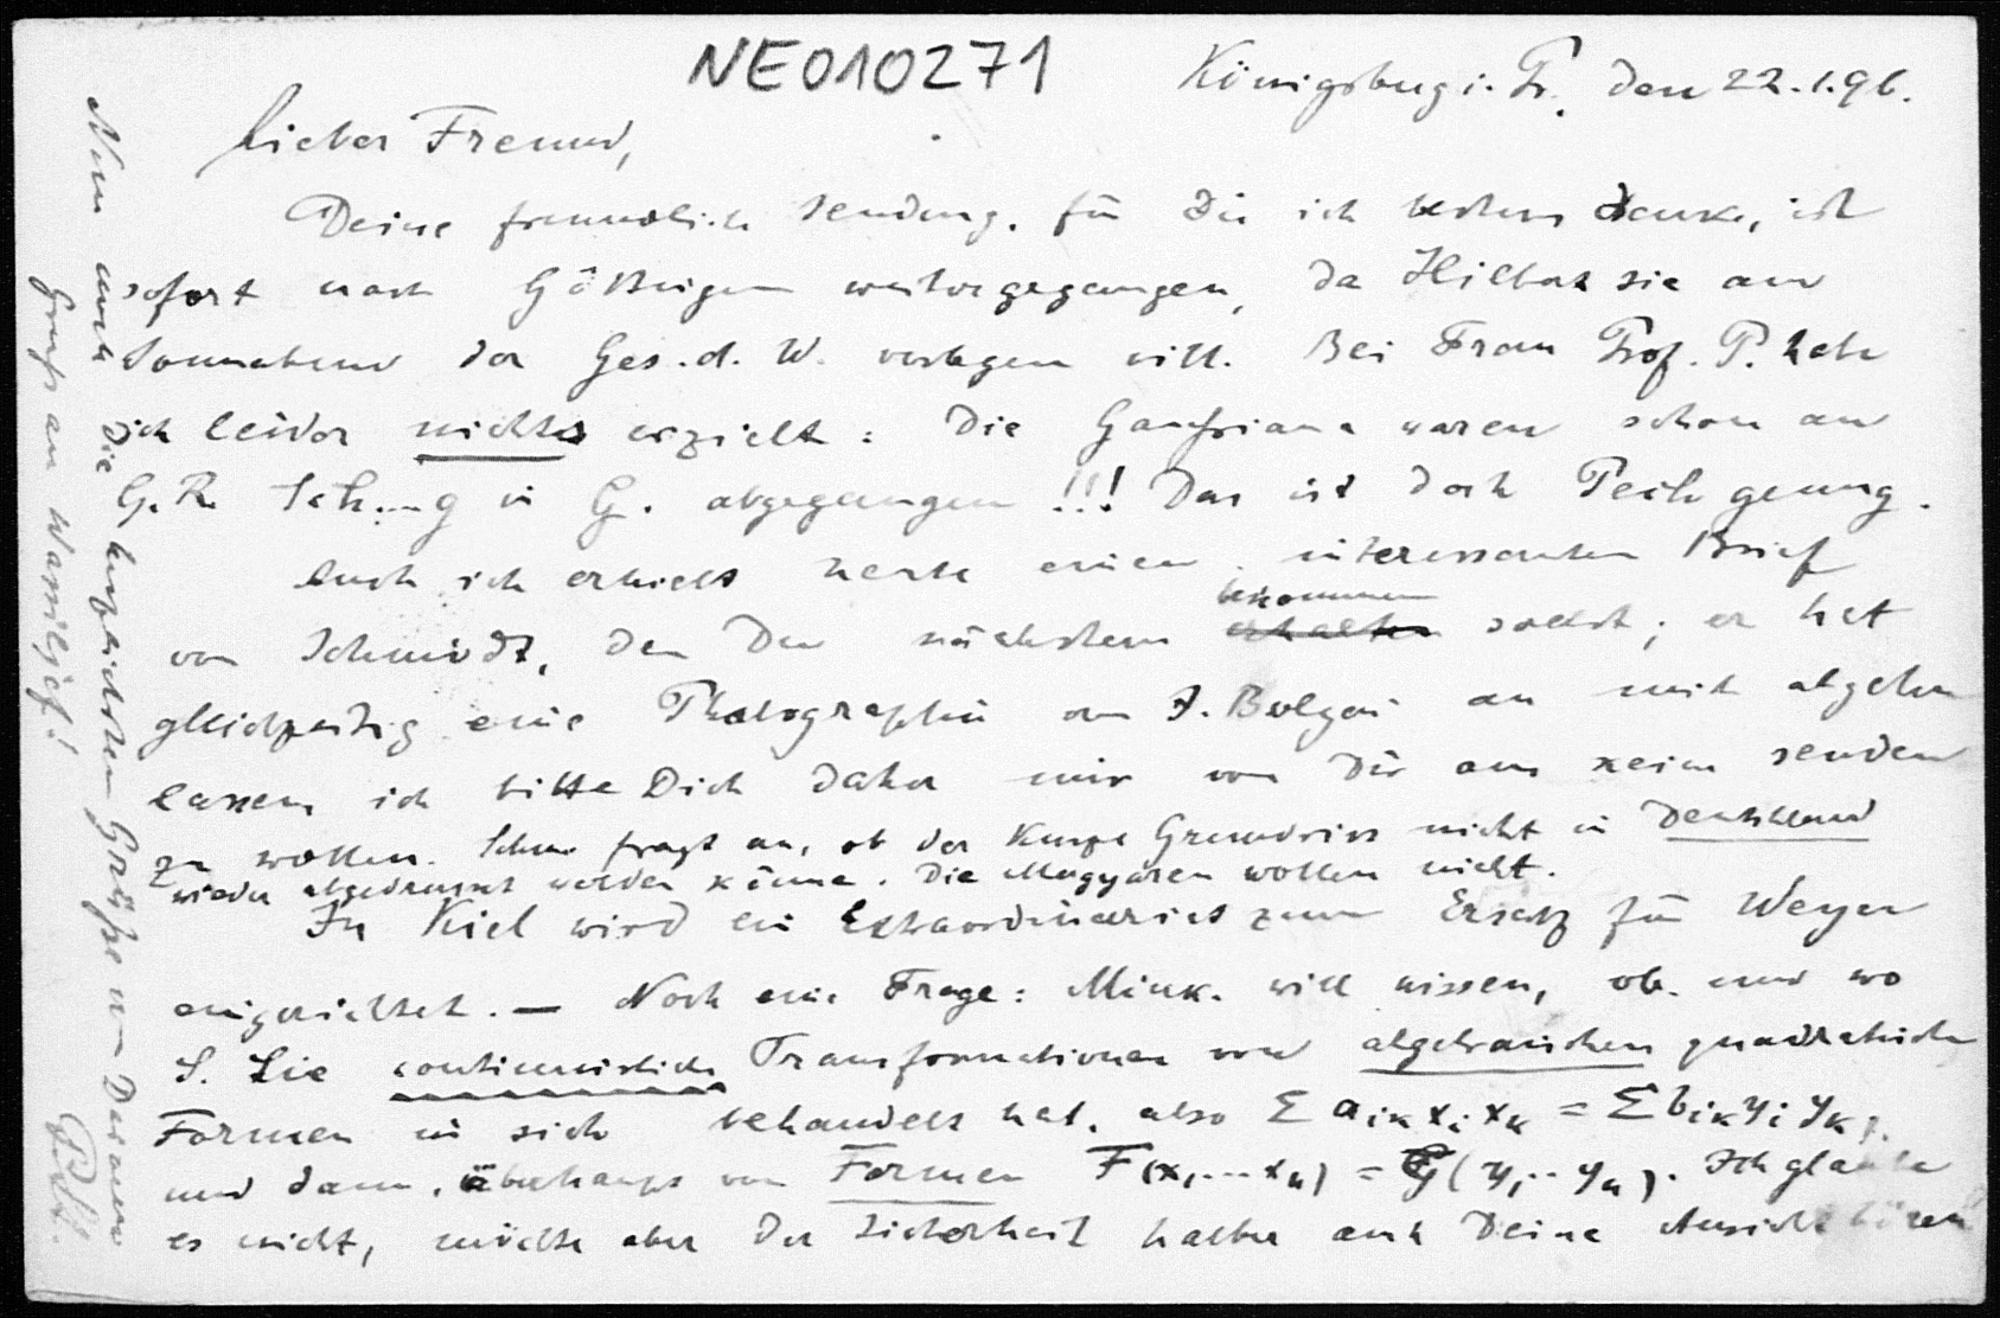 NE010271
Königsberg i. Pr. den 22.1.96.
Lieber Freund,
Deine freundliche Sendung, für die ich bestens danke, ist
sofort nach Göttingen weitergegangen, da Hilbert sie am
Sonnabend der Ges. d. W. vorlegen will. Bei Frau Prof. P. habe
ich leider nichts erzielt: Die Gaussiana waren schon an
G. R. Sch...g in G. abgegangen!!! Das ist doch Pech genug.
Auch ich erhielt heute einen interessanten Brief
von Schmidt, den Du nächstens erhalten bekommen sollst; er hat
gleichzeitig eine Photographie von J. Bolyai an mich abgehen
lassen, ich bitte Dich daher mir von Dir aus keine senden
zu wollen. Schm. fragt an, ob der Kurze Grundriss nicht in Deutschland
wieder abgedruckt werden könne. Die Magyaren wollen nicht.
In Kiel wird ein Extraordinariat zum Ersatz für Weyer
eingerichtet. — Noch eine Frage: Mink. will wissen, ob und wo
S. Lie continuirliche Transformationen von algebraischen quadratischen
Formen in sich behandelt hat, also Σ aᵢₖ xᵢ xₖ = Σ bᵢₖ yᵢ yₖ,
und dann, überhaupt von Formen F(x₁...xₙ) = G(y₁..yₙ). Ich glaube
es nicht, möchte aber der Sicherheit halber auch Deine Ansicht hören
Nun noch die herzlichsten Grüße von Deinem
Gruß an Wassiljef!